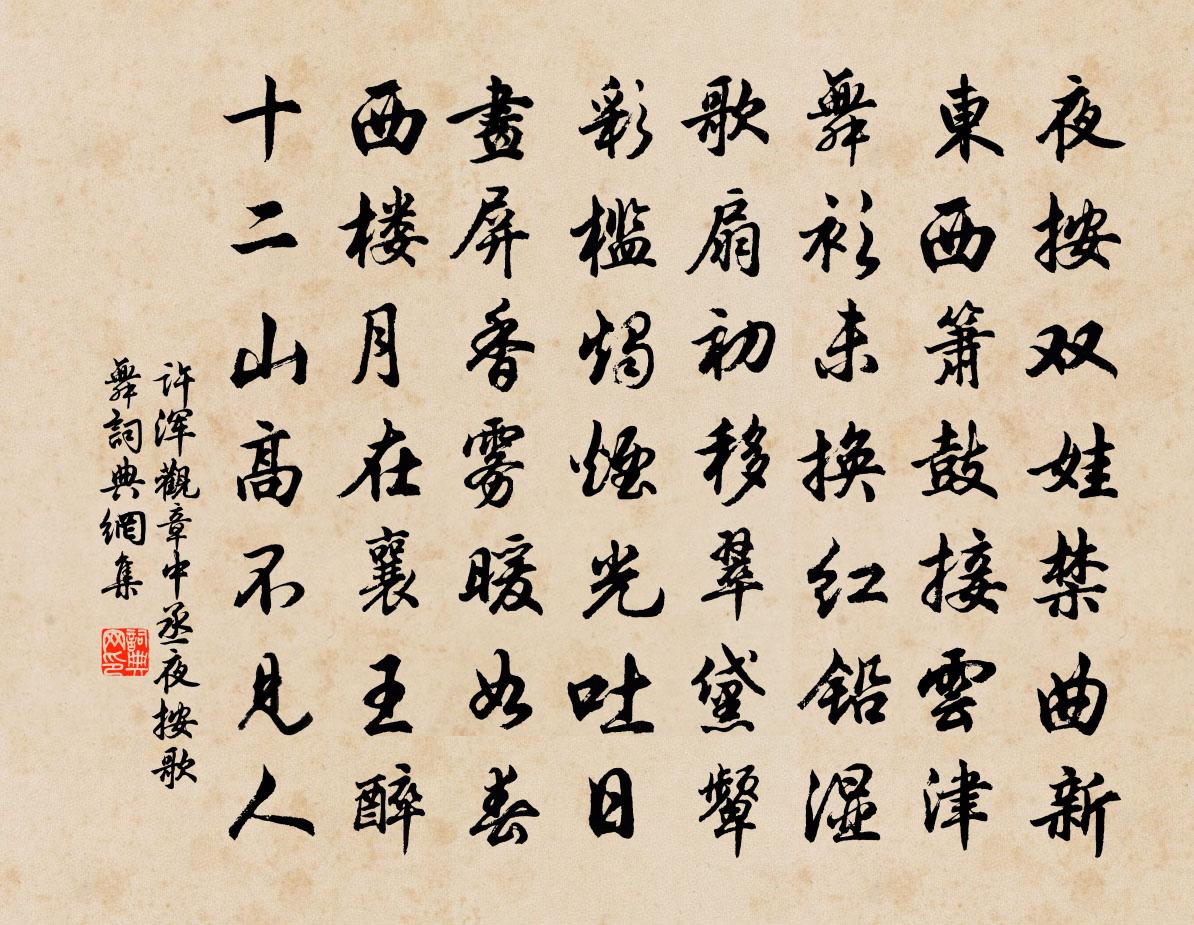 夜按双娃禁曲新
東西簫鼓接雲津
舞衫未換红铅湿
歌扇初移翠黛颦
彩檻燭煙光吐日
畫屏香雾暖如春
西楼月在襄王醉
十二山高不見人
許浑觀章中丞夜按歌
舞詞典網集
詞典网印